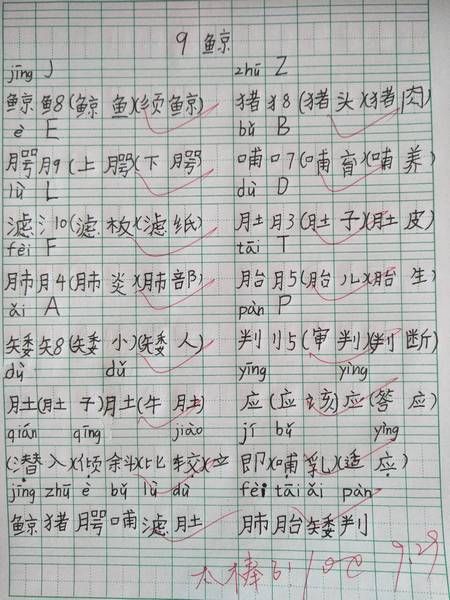 9 鲸
jīng J zhū Z
鲸 鱼8(鲸 鱼)(须鲸) 猪 犭8(猪 头)(猪 肉)
è E bǔ B
腭 月9(上 腭)(下 腭) 哺 口7(哺 育)(哺 养)
lǜ L dù D
滤 氵10(滤 板)(滤 纸) 肚 月3(肚 子)(肚 皮)
fèi F tāi T
肺 月4(肺 炎)(肺部) 胎 月5(胎 儿)(胎 生)
ǎi A pàn P
矮 矢8(矮 小)(矮 人) 判 刂5(审 判)(判 断)
dù dǔ yīng yìng
肚(肚 子)肚(牛 肚) 应(应 该)应(答 应)
qián qīng jiào jí bǔ yìng
(潜 入)(倾 斜)(比 较)( 即)(哺 乳)(适 应)
jīng zhū è bǔ lǜ dù fèi tāi ǎi pàn
鲸 猪 腭 哺 滤 肚 肺 胎 矮 判
太棒了! 100 9.29